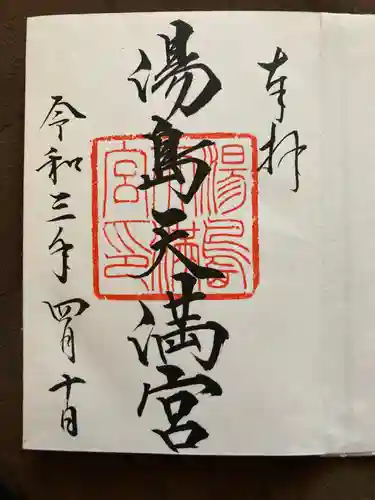 奉拝
湯島天満宮
令和三年四月十日
湯島
天満
宮印